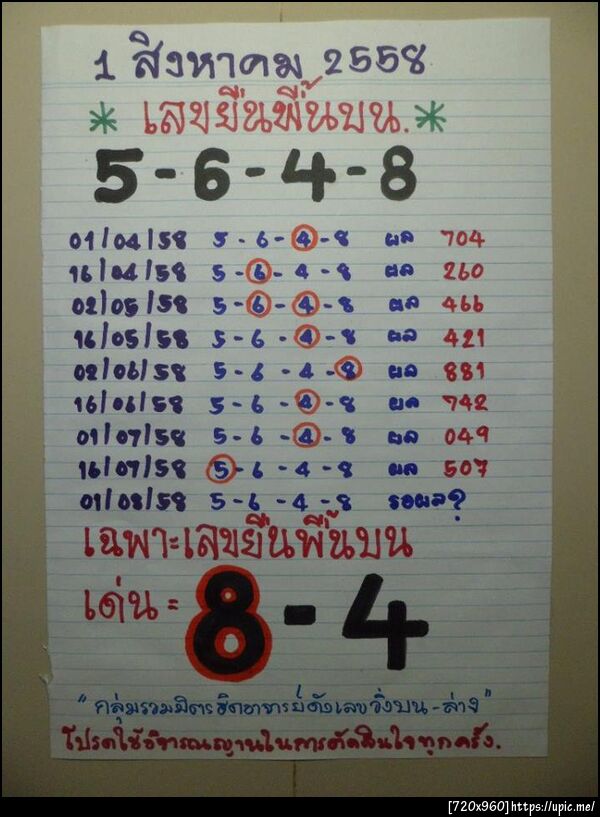 1 สิงหาคม 2558
* เลขยืนพื้นบน. *
5-6-4-8
01/04/58 5-6-4-8 ผล 704
16/04/58 5-6-4-8 ผล 260
02/05/58 5-6-4-8 ผล 466
16/05/58 5-6-4-8 ผล 421
02/06/58 5-6-4-8 ผล 881
16/06/58 5-6-4-8 ผล 742
01/07/58 5-6-4-8 ผล 049
16/07/58 5-6-4-8 ผล 507
01/08/58 5-6-4-8 รอผล?
เฉพาะเลขยืนพื้นบน
เด่น = 8-4
"กลุ่มรวมมิตรฮิตอาจารย์ดังเลขวิ่งบน-ล่าง"
โปรดใช้วิจารณญาณในการตัดสินใจทุกครั้ง.
[720x960]https://upic.me/